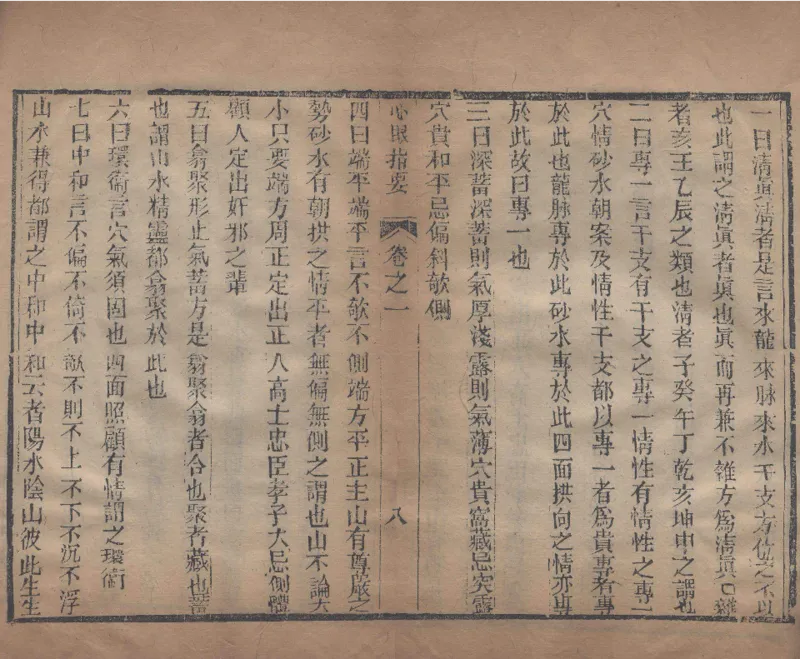 一曰清眞清者是言來龍來脉來水干支方位之不以
也此謂之淸眞者眞也眞而再兼不雜方爲淸眞雜
者亥壬乙辰之類也清者子癸午丁乾亥坤申之謂也
二曰專一言干支有干支之專一情性有情性之專一
穴情砂水朝案及情性干支都以專一者爲貴專者專
於此也龍脉專於此砂水專於此四面拱向之情亦專
於此故曰專一也
三曰深蓄深蓄則氣厚淺露則氣薄穴貴窩藏忌突露
穴貴和平忌偏斜欹側
心眼指要 卷之一 八
四曰端平端平言不欹不側端方平正主山有尊嚴之
勢砂水有朝拱之情平者無偏無側之謂也山不論大
小只要端方周正定出正人高士忠臣孝子大忌側體
顧人定出奸邪之輩
五曰翕聚形止氣蓄方是翕聚翕者合也聚者藏也蓄
也謂山水精靈都翕聚於此也
六曰環衛言穴氣須固也四面照顧有情謂之環衛
七曰中和言不偏不倚不欹不則不上不下不沉不浮
山水兼得都謂之中和中和云者陽水陰山彼此生生